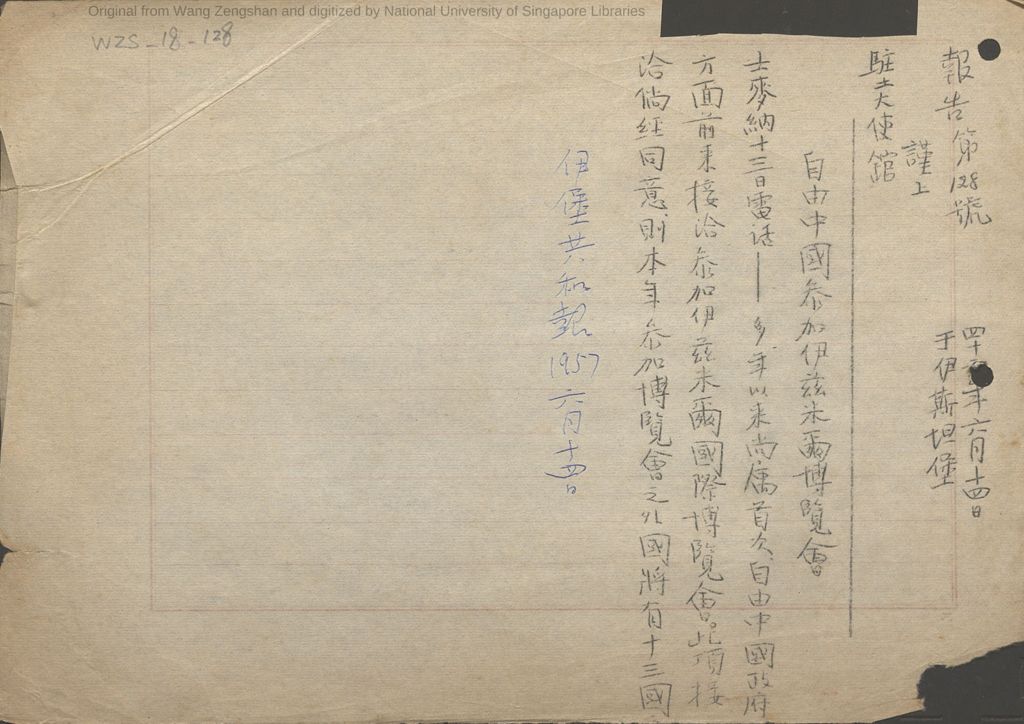 Original from Wang Zengshan and digitized by National University of Singapore Libraries
WZS-18-128
報告第128號
四十年六月十四日
于伊斯坦堡
謹上
駐土大使館
自由中國參加伊茲米爾博覽會
士麥納十三日電話——多年以來尚屬首次自由中國政府
方面前來接洽參加伊茲米爾國際博覽會。此項接
洽倘經同意,則本年參加博覽會之外國將有十三國
伊堡共和報 1957 六月十四日